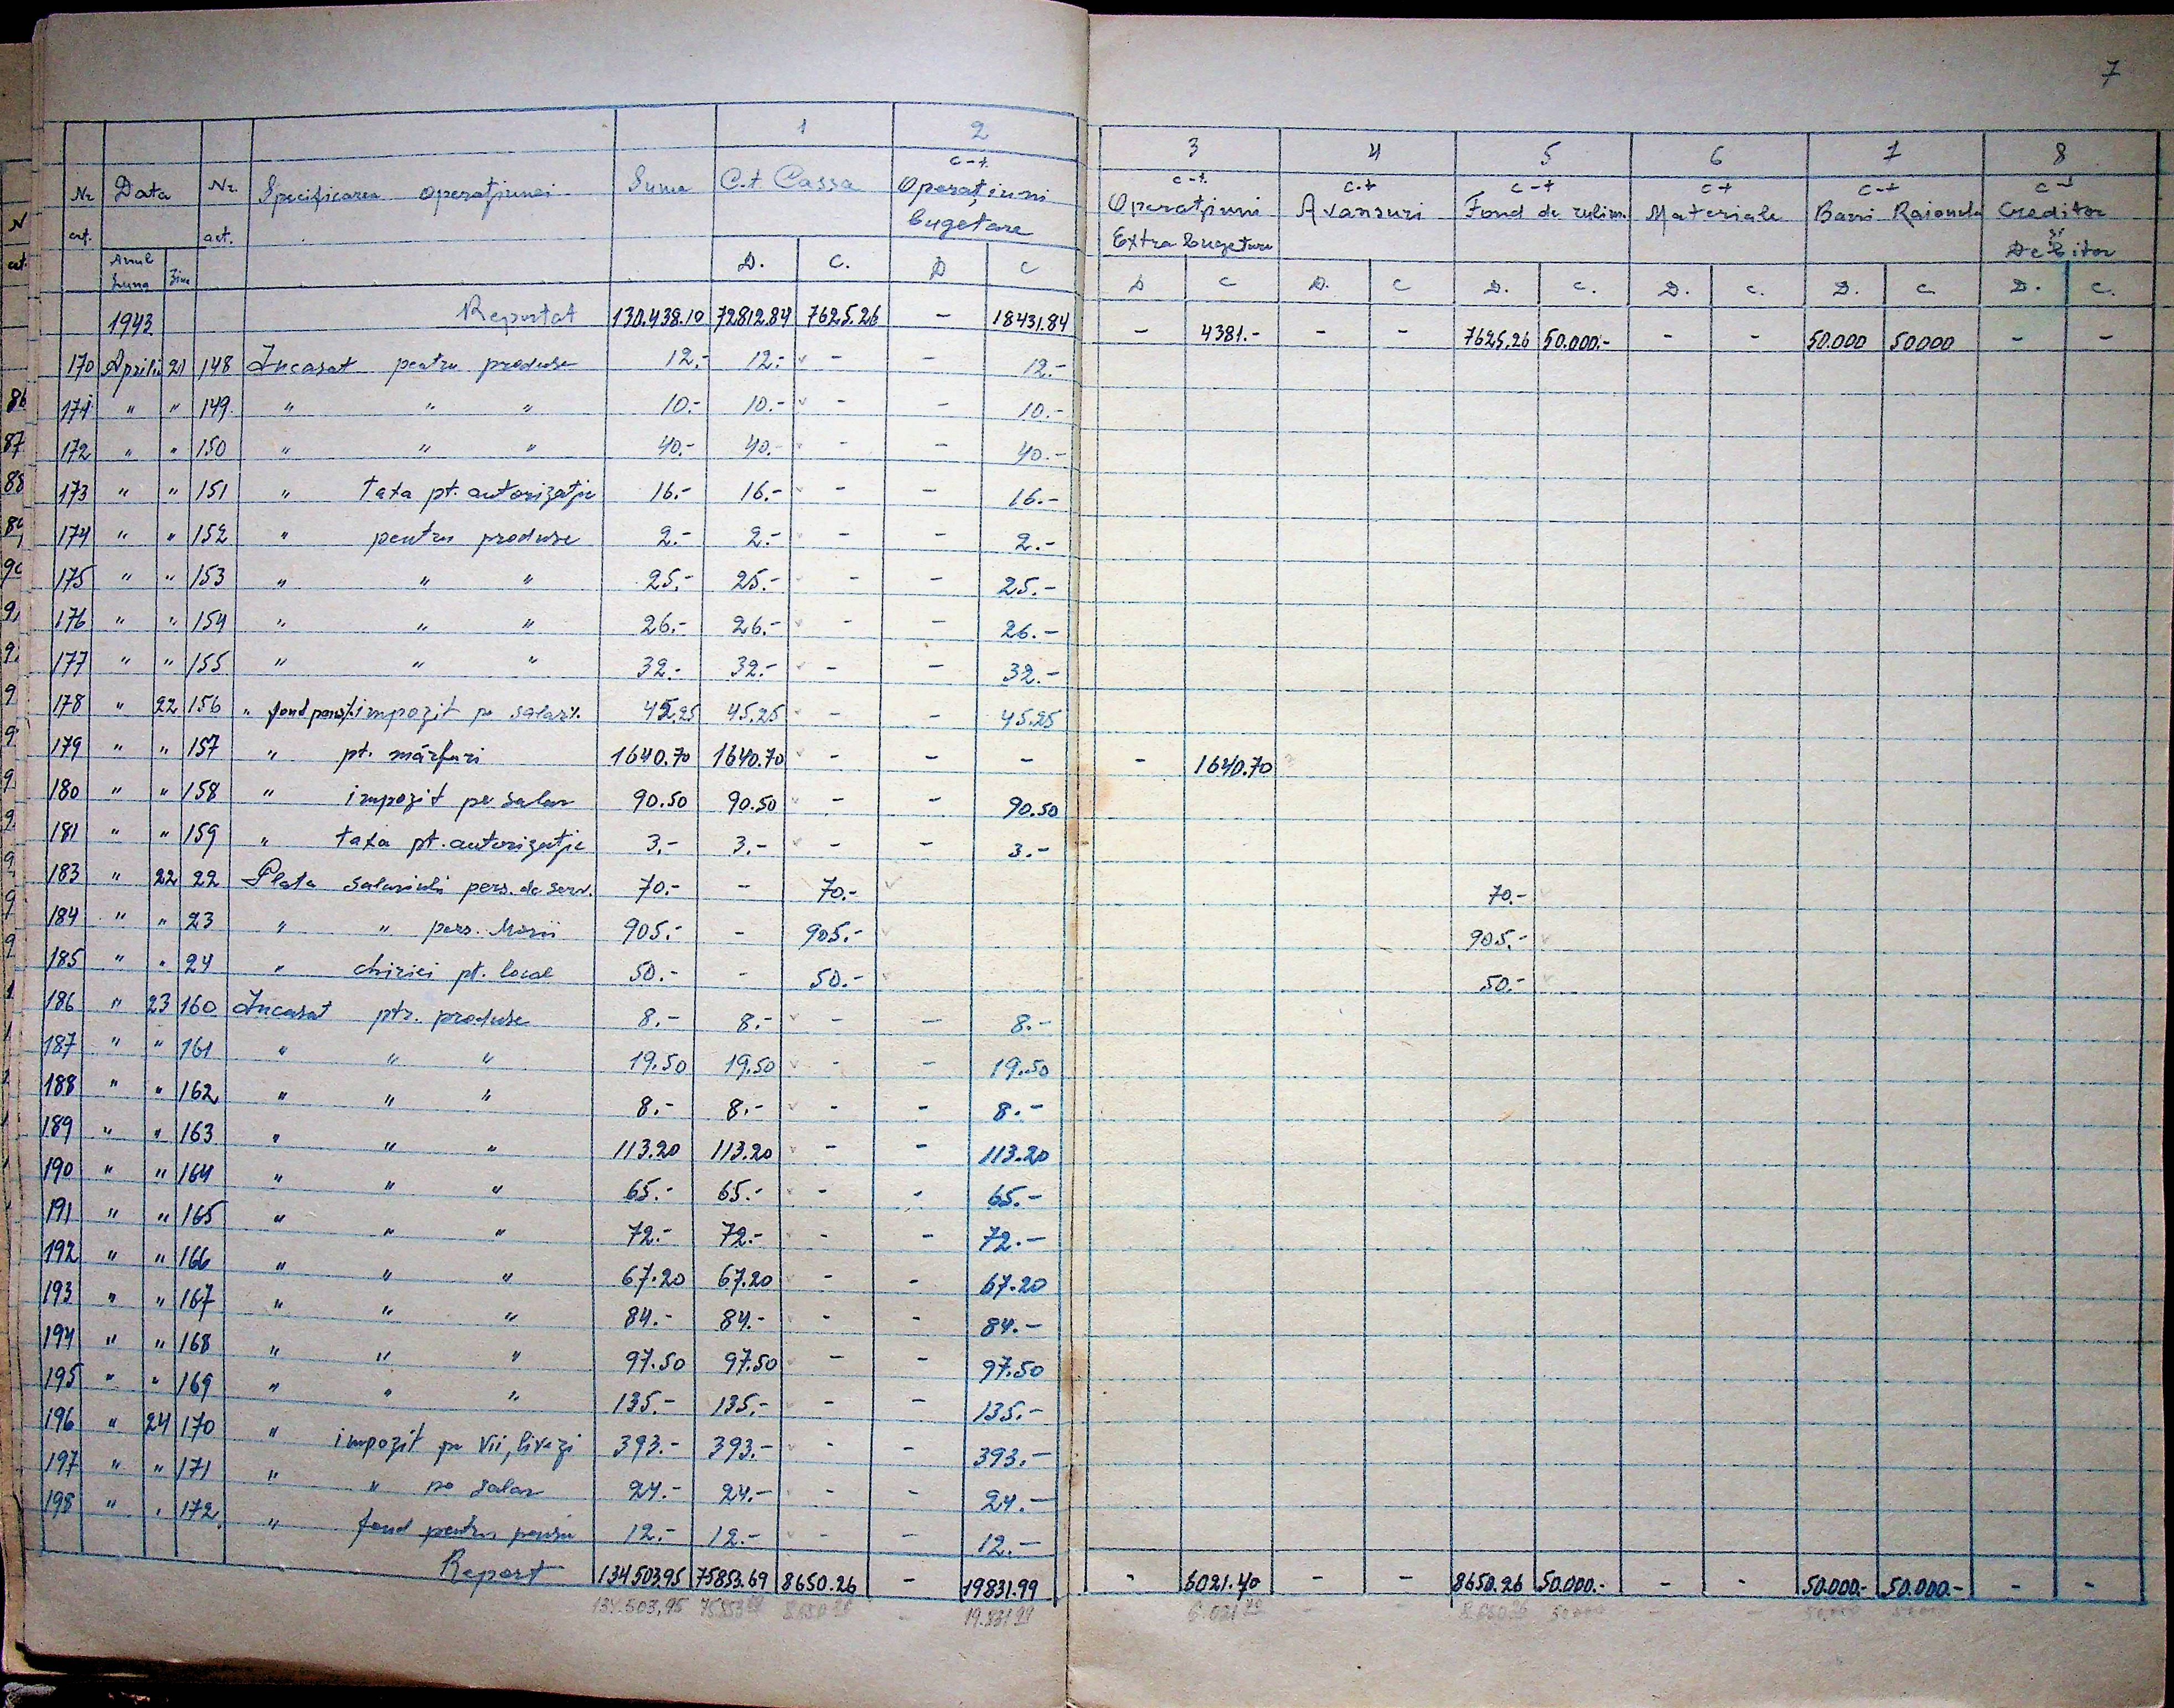 7
1 2 3 4 5 6 7 8
Nr. Data Nr. Specificarea operațiunei Suma C.t Cassa c-t. Operațiuni c-t. Operațiuni c.t Avansuri c-t Fond de rulim. c-t Materiale c-t Bani Raionului c-t Creditor
crt. act. bugetare Extra bugetare și Debitor
Anul Luna Ziua D. C. D C D C D. C D. C. D. C. D. C D. C.
1943 Reportat 130.438.10 72812.84 7625.26 - 18431.84 - 4381.- - - 7625.26 50.000.- - - 50.000 50000 - -
170 Aprilie 21 148 Incasat pentru produse 12.- 12.- - - 12.-
171 " " 149 " " " 10.- 10.- - - 10.-
172 " " 150 " " " 40.- 40.- - - 40.-
173 " " 151 " taxa pt. autorizație 16.- 16.- - - 16.-
174 " " 152 " pentru produse 2.- 2.- - - 2.-
175 " " 153 " " " 25.- 25.- - - 25.-
176 " " 154 " " " 26.- 26.- - - 26.-
177 " " 155 " " " 32.- 32.- - - 32.-
178 " 22 156 " fond impozit pe salar 45.25 45.25 - - 45.25
179 " " 157 " pt. mărfuri 1640.70 1640.70 - - - - 1640.70
180 " " 158 " impozit pe salar 90.50 90.50 - - 90.50
181 " " 159 " taxa pt. autorizație 3.- 3.- - - 3.-
183 " 22 22 Plata salariului pers. de serv. 70.- - 70.- 70.-
184 " " 23 " " pers. Morii 905.- - 905.- 905.-
185 " " 24 " chiriei pt. local 50.- - 50.- 50.-
186 " 23 160 Incasat ptr. produse 8.- 8.- - - 8.-
187 " " 161 " " " 19.50 19.50 - - 19.50
188 " " 162 " " " 8.- 8.- - - 8.-
189 " " 163 " " " 113.20 113.20 - - 113.20
190 " " 164 " " " 65.- 65.- - - 65.-
191 " " 165 " " " 72.- 72.- - - 72.-
192 " " 166 " " " 67.20 67.20 - - 67.20
193 " " 167 " " " 84.- 84.- - - 84.-
194 " " 168 " " " 97.50 97.50 - - 97.50
195 " " 169 " " " 135.- 135.- - - 135.-
196 " 24 170 " impozit pe vii, livezi 393.- 393.- - - 393.-
197 " " 171 " " pe salar 24.- 24.- - - 24.-
198 " " 172 " fond pentru pensii 12.- 12.- - - 12.-
Report 134503.95 75853.69 8650.26 - 19831.99 - 6021.40 - - 8650.26 50.000.- - - 50.000.- 50.000.- - -
134.503,95 75853 69 8650 26 - 19.831 99 - 6.021 70 - - 8.650 26 50000 - - 50.000 50000 - -